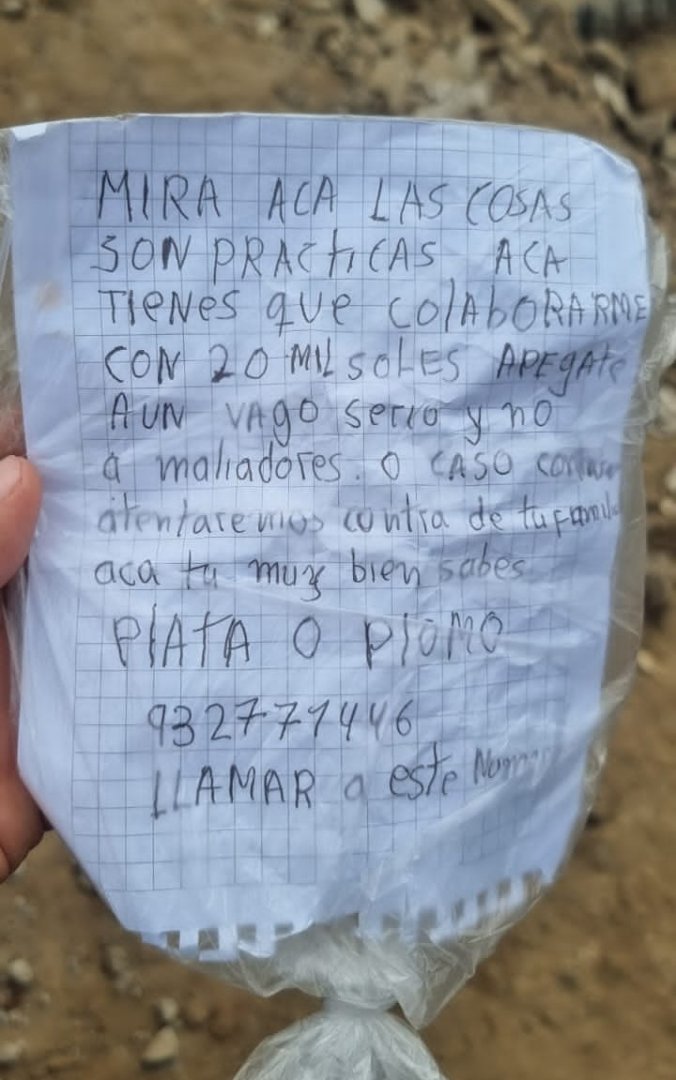 MIRA ACA LAS COSAS
SON PRACtiCAS ACA
TIENES que COlAbORARME
CON 20 MIL SOLES APEgAte
A UN VAgO serio y no
a maliadores. O CASO
atentaremos contra de tu
aca tu muy bien sabes
PlATA O PlOMO
932771446
LLAMAR a este